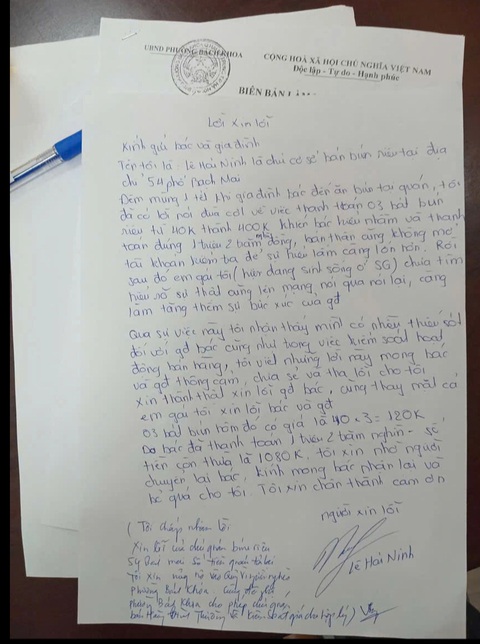 UBND PHƯỜNG BẠCH KHOA
CỘNG HOÀ XÃ HỘI CHỦ NGHĨA VIỆT NAM
Độc lập - Tự do - Hạnh phúc
BIÊN BẢN
Lời xin lỗi
Kính gửi bác và gia đình
Tên tôi là Lê Hải Ninh là chủ cơ sở bán bún riêu tại địa
chỉ 54 phố Bạch Mai
Đêm mùng 1 tết khi gia đình bác đến ăn bún tại quán, tôi
đã có lời nói đùa cợt về việc thanh toán 03 bát bún
riêu từ 40k thành 400k khiến bác hiểu nhầm và thanh
toán đúng 1 triệu 2 trăm nghìn đồng, bản thân cũng không mở
tài khoản kiểm tra để sự hiểu lầm càng lớn hơn. Rồi
sau đó em gái tôi (hiện đang sinh sống ở SG) chưa tìm
hiểu rõ sự thật cũng lên mạng nói qua nói lại, càng
làm tăng thêm sự bức xúc của gđ
Qua sự việc này tôi nhận thấy mình có nhiều thiếu sót
đối với gđ bác cũng như trong việc kiểm soát hoạt
động bán hàng, tôi viết những lời này mong bác
và gđ thông cảm, chia sẻ và tha lỗi cho tôi
xin thành thật xin lỗi gđ bác, cũng thay mặt cả
em gái tôi xin lỗi bác và gđ
03 bát bún hôm đó có giá là 40 x 3 = 120K
Do bác đã thanh toán 1 triệu 2 trăm nghìn - số
tiền còn thừa là 1080K. tôi xin nhờ người
chuyển lại bác, kính mong bác nhận lại và
bỏ quá cho tôi. Tôi xin chân thành cảm ơn
người xin lỗi
Lê Hải Ninh
( Tôi chấp nhận lời
xin lỗi của chủ quán bún riêu
54 Số tiền quán trả lại
Tôi xin ủng hộ vào Quỹ vì người nghèo
phường Bách Khoa
phường Bách Khoa cho phép
bán hàng bình thường